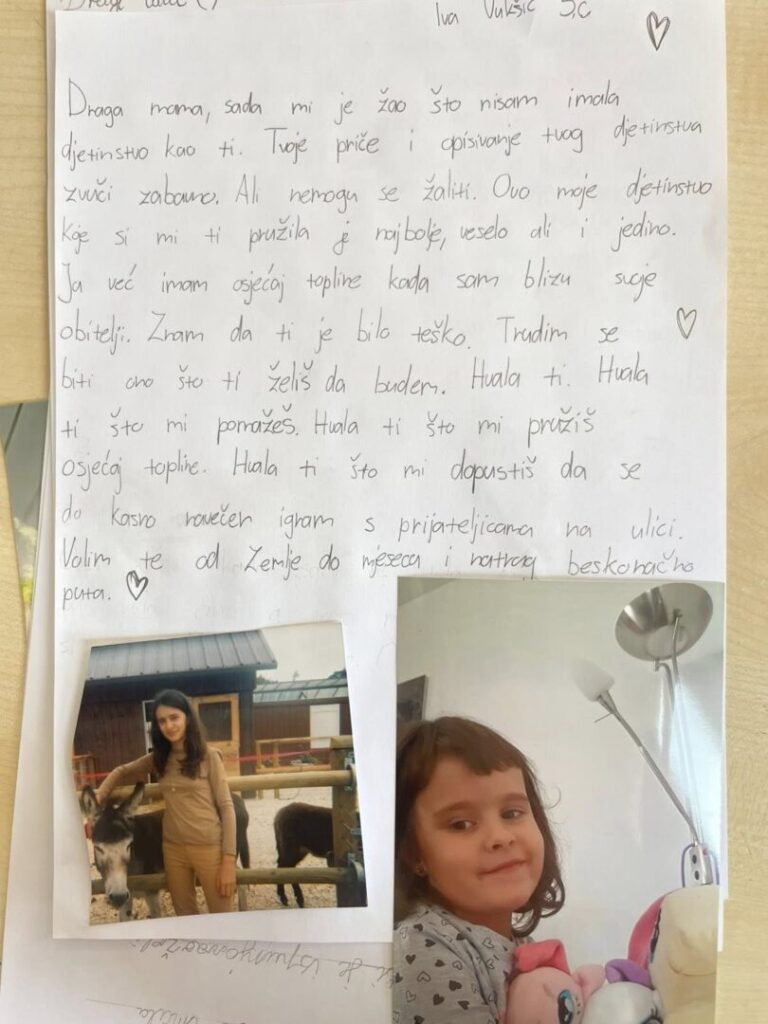 Iva Vukšić 5.c
Draga mama, sada mi je žao što nisam imala
djetinstvo kao ti. Tvoje priče i opisivanje tvog djetinstva
zvuči zabavno. Ali nemogu se žaliti. Ovo moje djetinstvo
koje si mi ti pružila je najbolje, veselo ali i jedino.
Ja već imam osjećaj topline kada sam blizu svoje
obitelji. Znam da ti je bilo teško. Trudim se
biti ono što ti želiš da budem. Hvala ti. Hvala
ti što mi pomažeš. Hvala ti što mi pružiš
osjećaj topline. Hvala ti što mi dopustiš da se
do kasno navečer igram s prijateljicama na ulici.
Volim te od Zemlje do mjeseca i natrag beskonačno
puta.